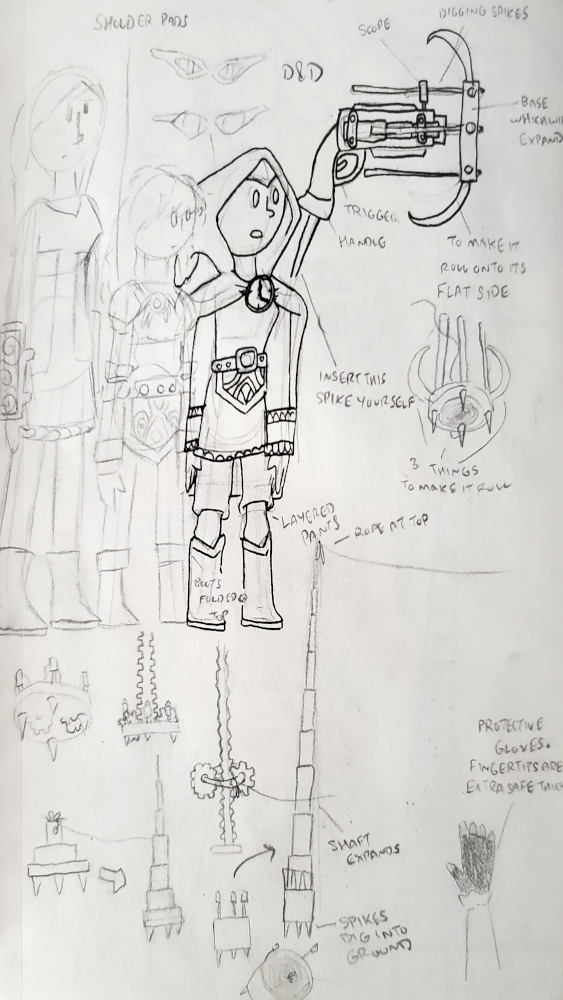 SHOULDER PADS
D&D
SCOPE
DIGGING SPIKES
BASE
WHICH
EXPAND
TRIGGER
HANDLE
TO MAKE IT
ROLL ONTO ITS
FLAT SIDE
INSERT THIS
SPIKE YOURSELF
3 THINGS
TO MAKE IT ROLL
LAYERED
PANTS
ROPE AT TOP
BOOTS
FOLDED @
TOP
PROTECTIVE
GLOVES.
FINGERTIPS ARE
EXTRA SAFE THICK
SHAFT
EXPANDS
SPIKES
DIG INTO
GROUND